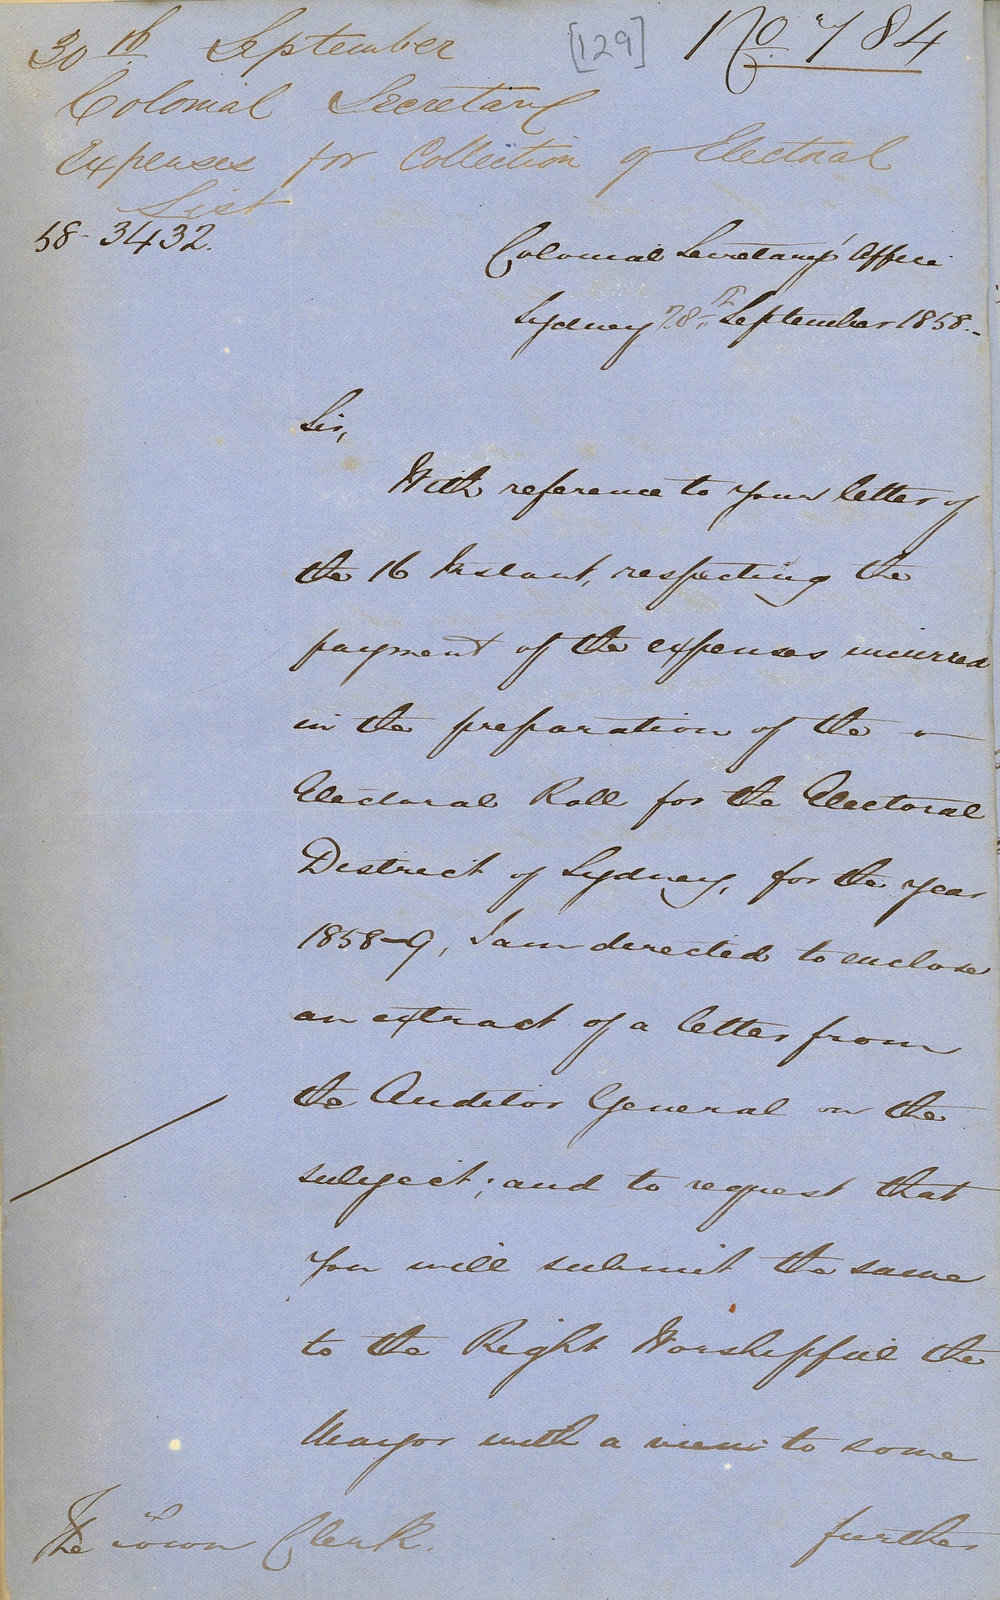 30th September [129] No. 784
Colonial Secretary
Expenses for Collection of Electoral
List
58-3432.
Colonial Secretary's Office
Sydney 28th September 1858.
Sir,
With reference to your letter of
the 16 Instant, respecting the
payment of the expenses incurred
in the preparation of the
Electoral Roll for the Electoral
District of Sydney, for the year
1858-9, I am directed to enclose
an extract of a letter from
the Auditor General on the
subject; and to request that
you will submit the same
to the Right Worshipful the
Mayor with a view to some
The Town Clerk. further